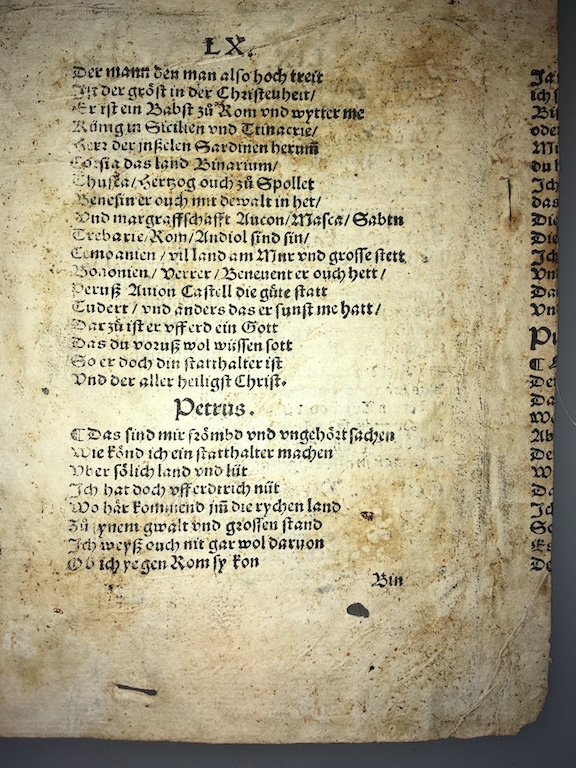 LX.
Der mann den man also hoch treit
Ist der gröst in der Christenheit/
Er ist ein Babst zů Rom vnd wytter me
Künig in Sicilien vnd Trinacrie/
Herr der jnßelen Sardinen herum̄
Corsia das land Binarium/
Thuscia/Hertzog ouch zů Spollet
Venesin er ouch mit dewalt in het/
Vnd margraffschafft Ancon/Masca/Sabin
Trebarie/Rom/Andiol sind sin/
Companien/vil land am Mur vnd grosse stett
Bononien/Verrer/Benevent er ouch hett/
Peruß Auion Castell die gůte statt
Tudert/vnd anders das er sunst me hatt/
Darzů ist er vff erd ein Gott
Das du voruß wol wüssen sott
So er doch din statthalter ist
Vnd der aller heiligst Christ.
Petrus.
¶Das sind mir frömbd vnd vngehört sachen
Wie könd ich ein statthalter machen
Vber sölich land vnd lüt
Ich hat doch vff erdtrich nüt
Wo här kommend jm̄ die rychen land
Zů synem gwalt vnd grossen stand
Ich weyß ouch nit gar wol daruon
Ob ich ye gen Rom sy kon
Bin
ich
Bis
oder
du
Ich
das
Die
Die
Ich
Vnd
Da
Vn
De
Da
We
Ab
De
W
Da
Ic
So
Es
De